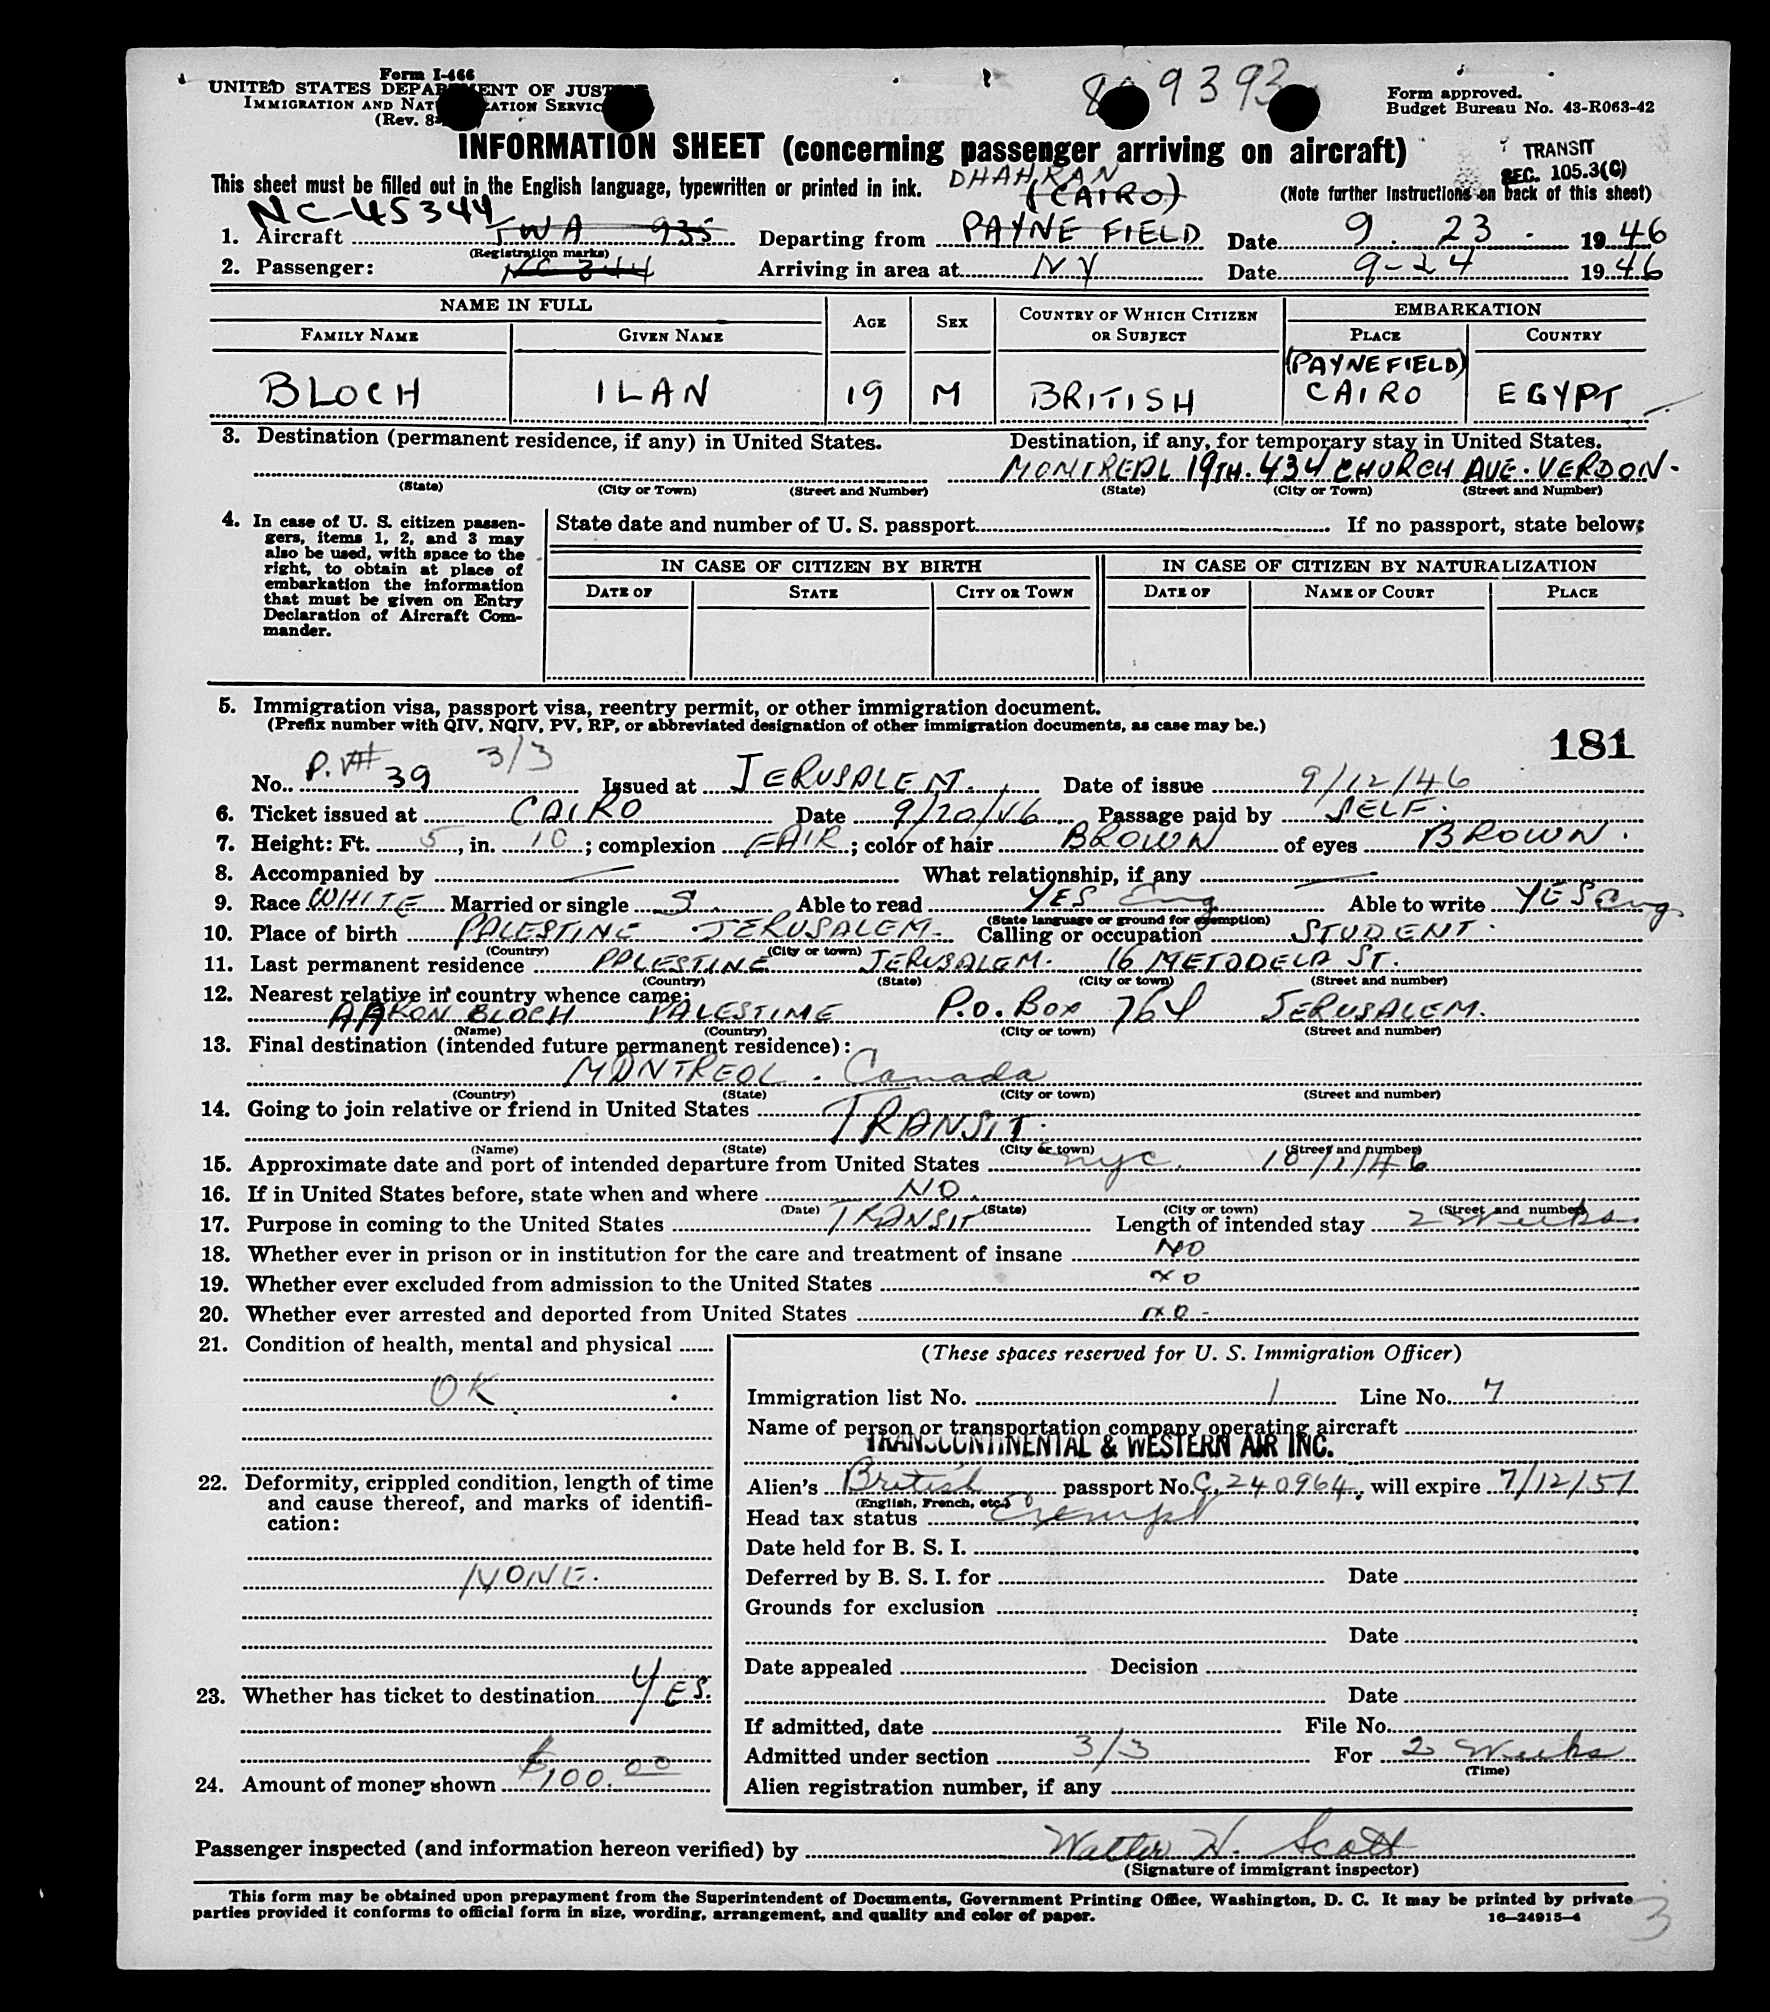 Form I-466
UNITED STATES DEPARTMENT OF JUSTICE
IMMIGRATION AND NATURALIZATION SERVICE
(Rev. 8-
9393
Form approved.
Budget Bureau No. 43-R063-42
INFORMATION SHEET (concerning passenger arriving on aircraft)
TRANSIT
SEC. 105.3(C)
This sheet must be filled out in the English language, typewritten or printed in ink.
DHAHRAN
(CAIRO)
(Note further instructions on back of this sheet)
NC-45344
1. Aircraft TWA 935 Departing from PAYNE FIELD Date 9. 23. 1946
(Registration marks)
2. Passenger: NC 344 Arriving in area at NY Date 9-24 1946
NAME IN FULL AGE SEX COUNTRY OF WHICH CITIZEN OR SUBJECT EMBARKATION
FAMILY NAME GIVEN NAME PLACE COUNTRY
(PAYNE FIELD)
BLOCH ILAN 19 M BRITISH CAIRO EGYPT
3. Destination (permanent residence, if any) in United States. Destination, if any, for temporary stay in United States.
MONTREAL 19TH. 434 CHURCH AVE. VERDON.
(State) (City or Town) (Street and Number) (State) (City or Town) (Street and Number)
4. In case of U. S. citizen passengers, items 1, 2, and 3 may also be used, with space to the right, to obtain at place of embarkation the information that must be given on Entry Declaration of Aircraft Commander.
State date and number of U. S. passport If no passport, state below:
IN CASE OF CITIZEN BY BIRTH IN CASE OF CITIZEN BY NATURALIZATION
DATE OF STATE CITY OR TOWN DATE OF NAME OF COURT PLACE
5. Immigration visa, passport visa, reentry permit, or other immigration document.
(Prefix number with QIV, NQIV, PV, RP, or abbreviated designation of other immigration documents, as case may be.)
181
No. P.V# 39 3/3 Issued at JERUSALEM. Date of issue 9/12/46
6. Ticket issued at CAIRO Date 9/20/46 Passage paid by SELF.
7. Height: Ft. 5, in. 10; complexion FAIR; color of hair BROWN of eyes BROWN.
8. Accompanied by — What relationship, if any —
9. Race WHITE Married or single S. Able to read YES Eng Able to write YES Eng
(State language or ground for exemption)
10. Place of birth PALESTINE JERUSALEM. Calling or occupation STUDENT.
(Country) (City or town)
11. Last permanent residence PALESTINE JERUSALEM. 16 METODELA ST.
(Country) (State) (City or town) (Street and number)
12. Nearest relative in country whence came:
AARON BLOCH PALESTINE P.O. BOX 764 JERUSALEM.
(Name) (Country) (City or town) (Street and number)
13. Final destination (intended future permanent residence):
MONTREOL. Canada
(Country) (State) (City or town) (Street and number)
14. Going to join relative or friend in United States
TRANSIT.
(Name) (State) (City or town) (Street and number)
15. Approximate date and port of intended departure from United States nyc. 10/1/46
16. If in United States before, state when and where NO.
(Date) (State) (City or town) (Street and number)
17. Purpose in coming to the United States TRANSIT Length of intended stay 2 Weeks.
18. Whether ever in prison or in institution for the care and treatment of insane NO
19. Whether ever excluded from admission to the United States NO
20. Whether ever arrested and deported from United States NO-
21. Condition of health, mental and physical
OK
22. Deformity, crippled condition, length of time and cause thereof, and marks of identification:
NONE.
23. Whether has ticket to destination YES.
24. Amount of money shown $100.00
(These spaces reserved for U. S. Immigration Officer)
Immigration list No. 1 Line No. 7
Name of person or transportation company operating aircraft
TRANSCONTINENTAL & WESTERN AIR INC.
Alien's British passport No. C. 240964, will expire 7/12/51
(English, French, etc.)
Head tax status Exempt
Date held for B. S. I.
Deferred by B. S. I. for Date
Grounds for exclusion
Date
Date appealed Decision
Date
If admitted, date File No.
Admitted under section 3/3 For 2 Weeks
(Time)
Alien registration number, if any
Passenger inspected (and information hereon verified) by Walter H. Scott
(Signature of immigrant inspector)
This form may be obtained upon prepayment from the Superintendent of Documents, Government Printing Office, Washington, D. C. It may be printed by private
parties provided it conforms to official form in size, wording, arrangement, and quality and color of paper.
16—24915-4
3